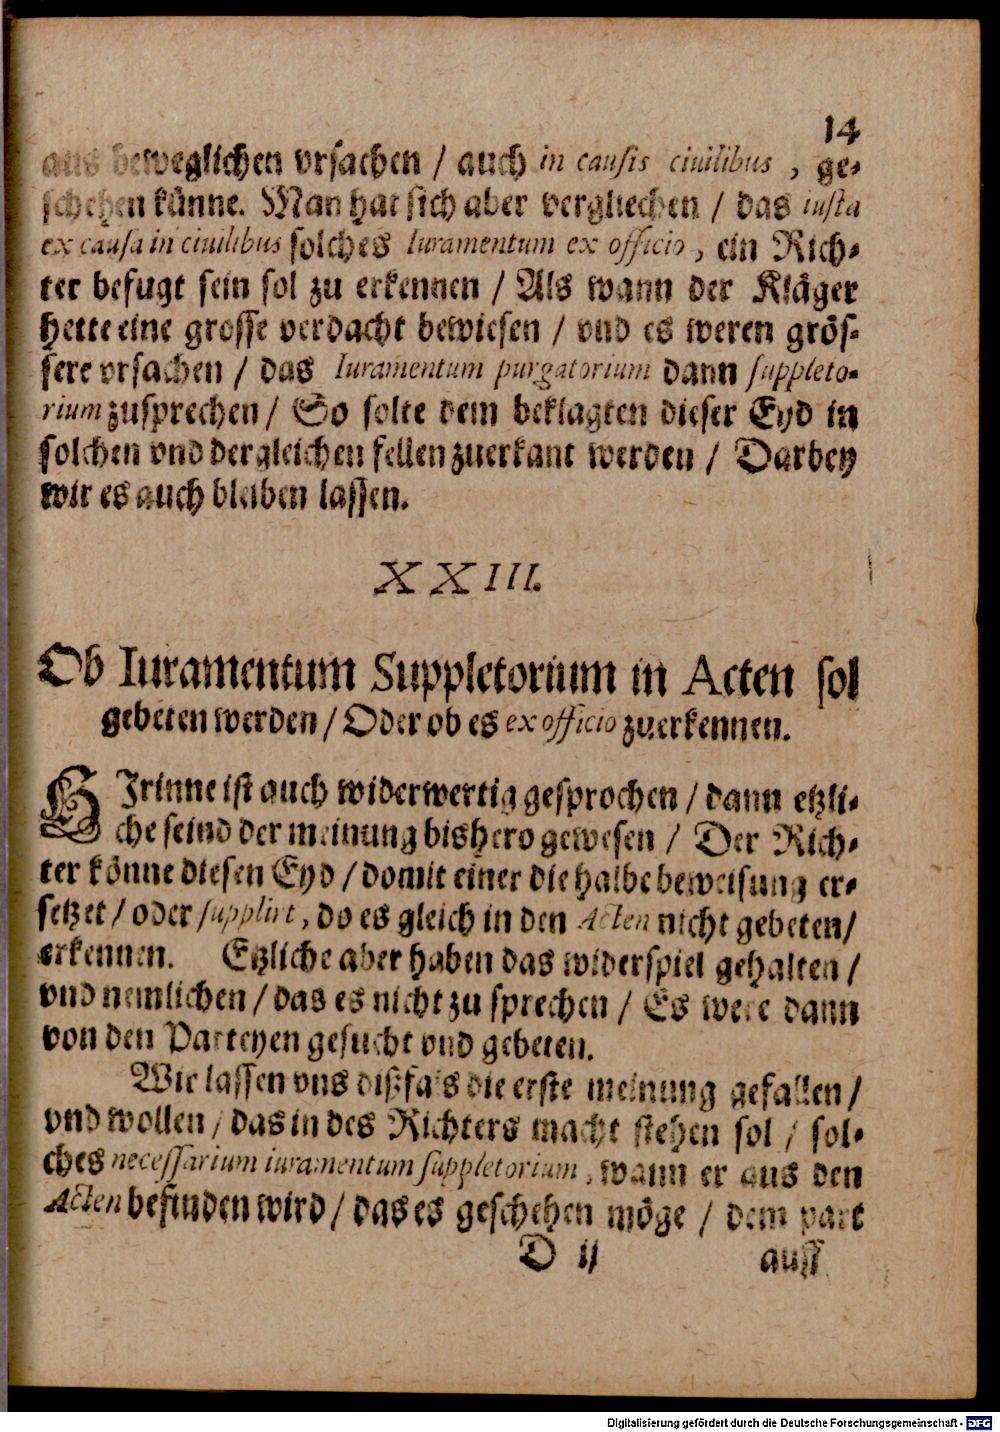 14
aus beweglichen vrsachen / auch in causis ciuilibus, ge-
schehen künne. Man hat sich aber vergliechen / das iusta
ex causa in ciuilibus solches Iuramentum ex officio, ein Rich-
ter befugt sein sol zu erkennen / Als wann der Kläger
hette eine grosse verdacht bewiesen / vnd es weren grös-
sere vrsachen / das Iuramentum purgatorium dann suppleto-
rium zusprechen / So solte dem beklagten dieser Eyd in
solchen vnd dergleichen fellen zuerkant werden / Darbey
wir es auch bleiben lassen.
XXIII.
Ob Iuramentum Suppletorium in Acten sol
gebeten werden / Oder ob es ex officio zuerkennen.
HIrinne ist auch widerwertig gesprochen / dann etzli-
che seind der meinung bishero gewesen / Der Rich-
ter könne diesen Eyd / domit einer die halbe beweisung er-
setzet / oder supplirt, do es gleich in den Acten nicht gebeten /
erkennen. Etzliche aber haben das widerspiel gehalten /
vnd nemlichen / das es nicht zu sprechen / Es were dann
von den Parteyen gesucht vnd gebeten.
Wir lassen vns dißfals die erste meinung gefallen /
vnd wollen / das in des Richters macht stehen sol / sol-
ches necessarium iuramentum suppletorium, wann er aus den
Acten befinden wird / das es geschehen möge / dem part
D ij auff
Digitalisierung gefördert durch die Deutsche Forschungsgemeinschaft - DFG